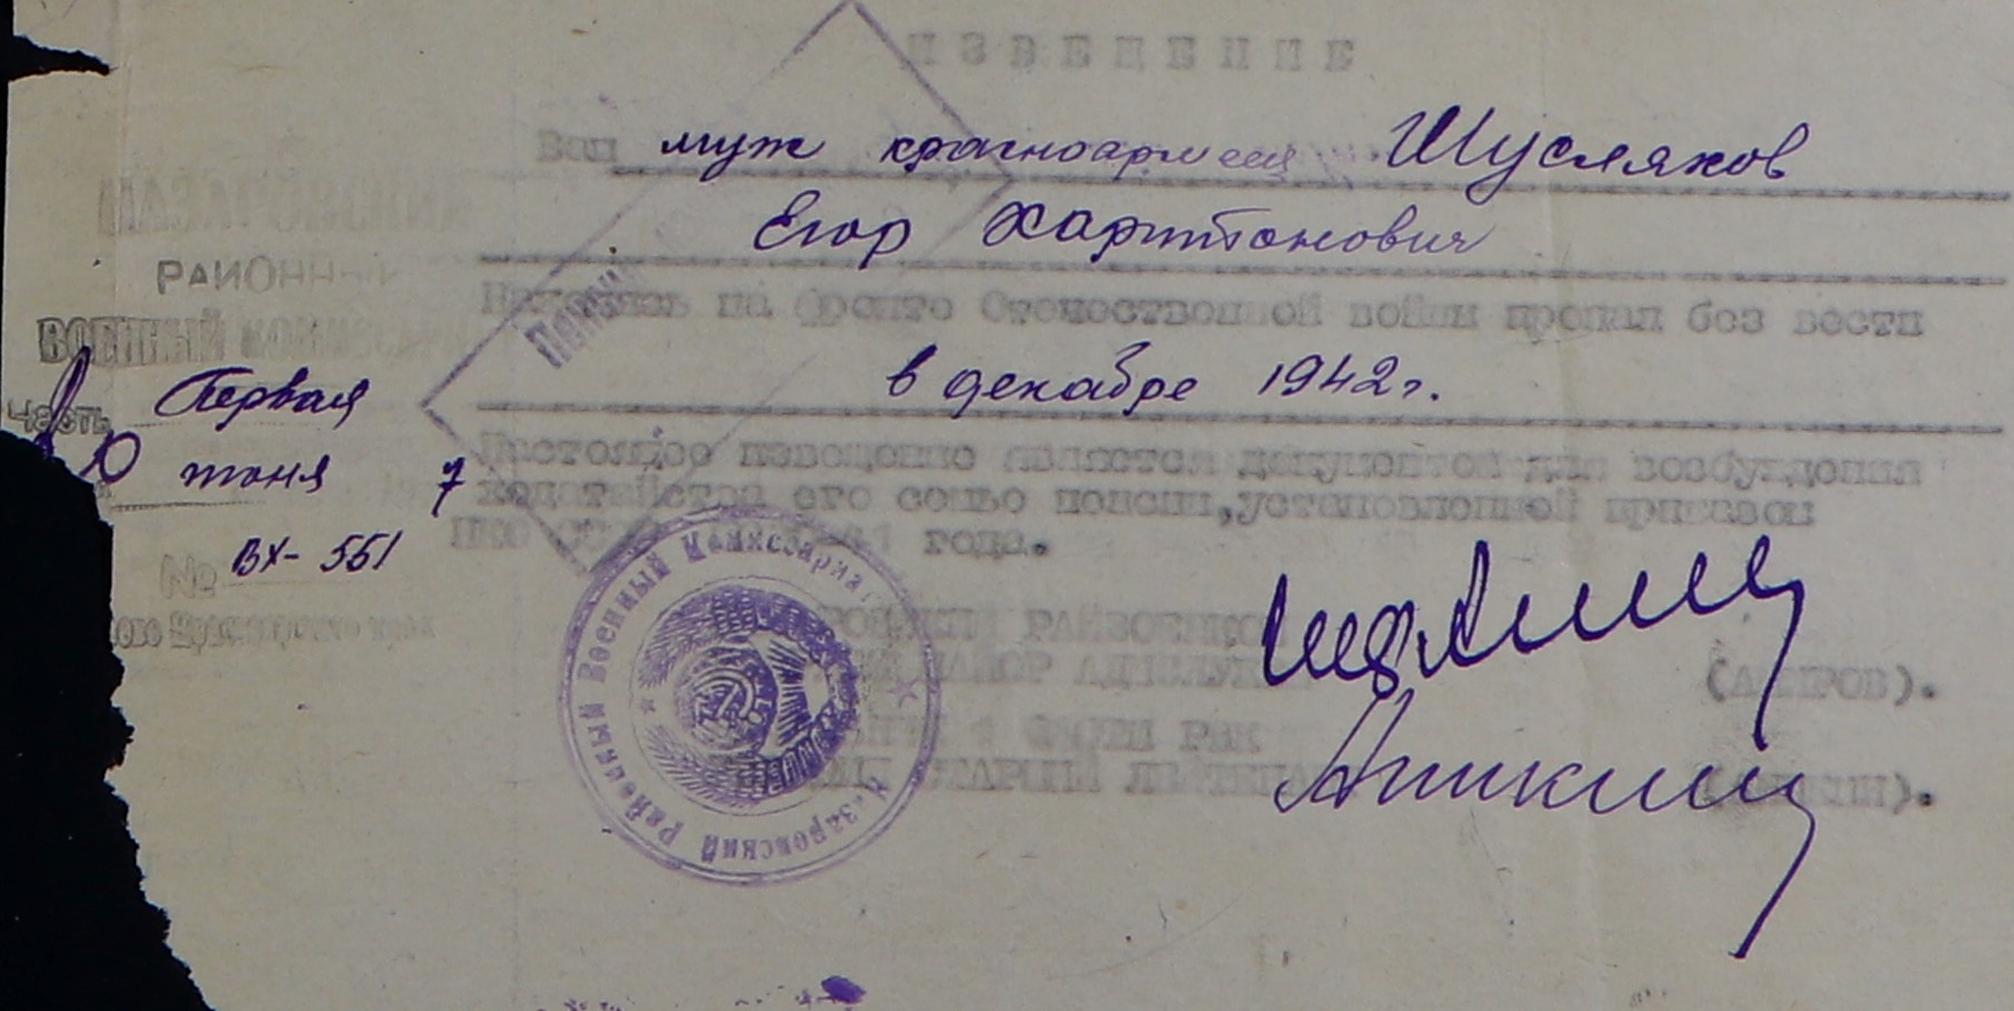 ИЗВЕЩЕНИЕ
Ваш муж красноармеец Шусляков
Егор Харитонович
Находясь на фронте Отечественной войны пропал без вести
в декабре 1942г.
Настоящее извещение является документом для возбуждения
ходатайства его семье пенсии, установленной приказом
НКО года.
НАЗАРОВСКИЙ
РАЙОННЫЙ
ВОЕННЫЙ КОМИССАРИАТ
Часть Первая
10 июня 7
№ ВХ-551
Красноярского края
РАЙВОЕНКОМ
МАЙОР АДМСЛУЖБЫ
1 ЧАСТИ РВК
СТАРШИЙ ЛЕЙТЕНАНТ
Аникин
Назаровский Районный Военный Комиссариат